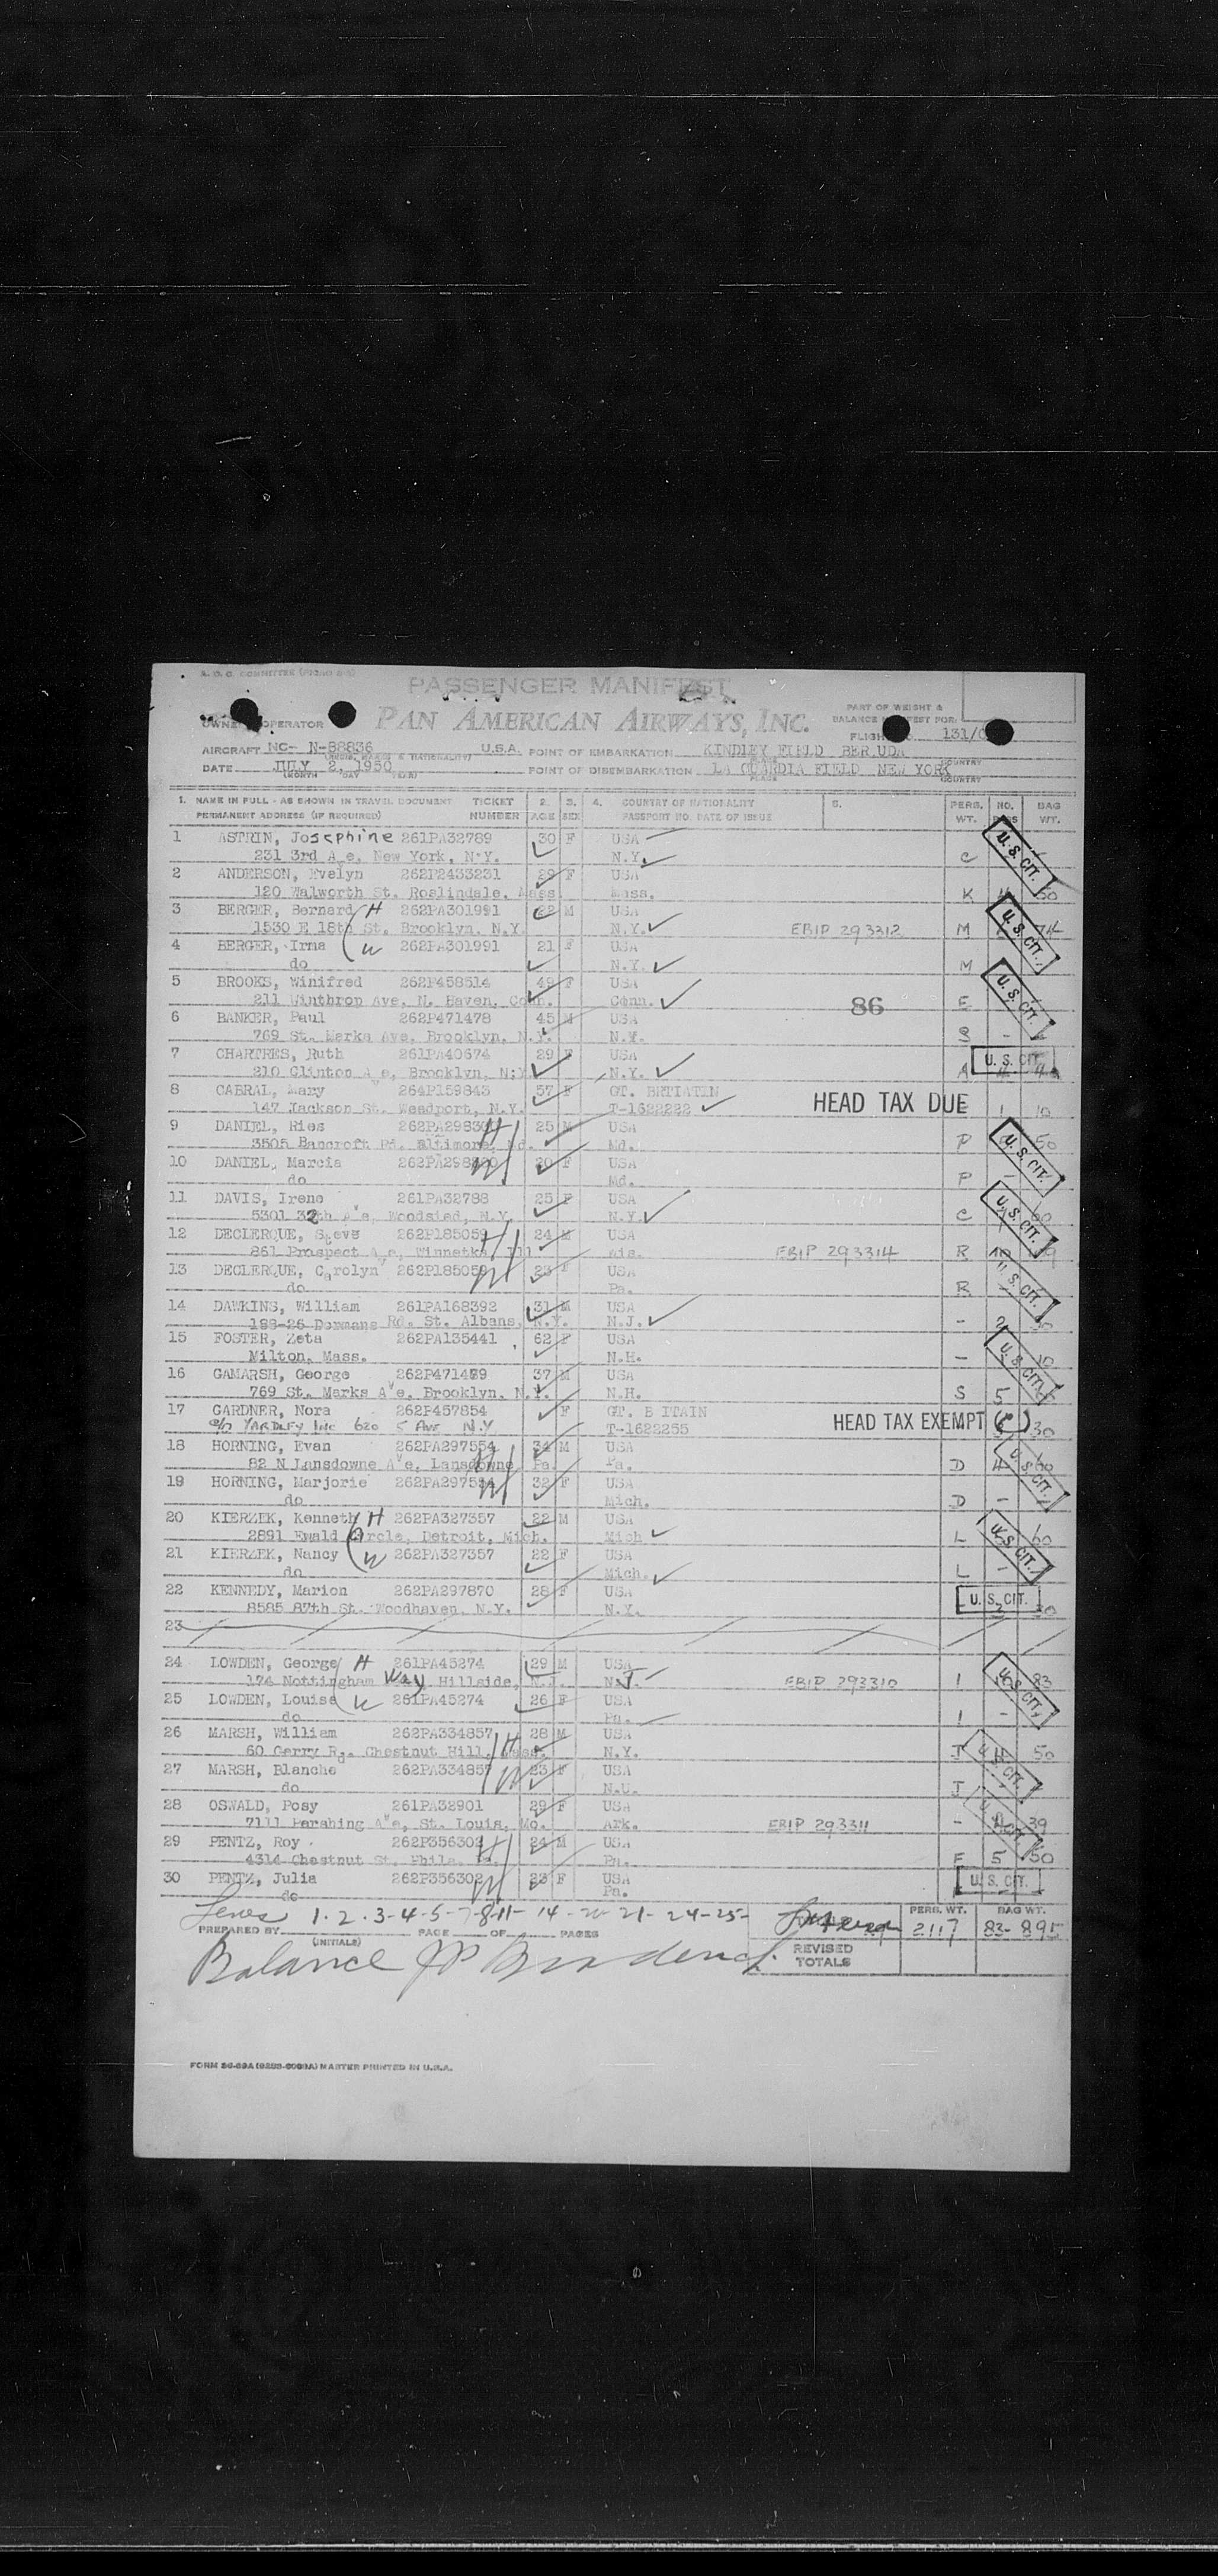 PASSENGER MANIFEST
OPERATOR PAN AMERICAN AIRWAYS, INC. PART OF WEIGHT &
AIRCRAFT NC- N-88836 U.S.A. POINT OF EMBARKATION KINDLEY FIELD BERUDA 131/
DATE JULY 2, 1950 POINT OF DISEMBARKATION LA GUARDIA FIELD NEW YORK
1. NAME IN FULL - AS SHOWN IN TRAVEL DOCUMENT TICKET 2. 3. 4. COUNTRY OF NATIONALITY 5. PERS. NO. BAG
PERMANENT ADDRESS (IF REQUIRED) NUMBER AGE SEX PASSPORT NO. DATE OF ISSUE WT. WT.
1 ASTRIN, Josephine 261PA32789 30 F USA
231 3rd A e, New York, N.Y. N.Y. C U. S. CIT.
2 ANDERSON, Evelyn 262P2433231 29 F USA
120 Walworth St. Roslindale, Mass. Mass. K 60
3 BERGER, Bernard H 262PA301991 M USA
1530 E 18th St. Brooklyn, N.Y. N.Y. EBIP 293312 M 74 U. S. CIT.
4 BERGER, Irma W 262PA301991 21 F USA
do N.Y. M
5 BROOKS, Winifred 262P458514 49 F USA
211 Winthrop Ave, N. Haven, Conn. Conn. 86 E U. S. CIT.
6 BANKER, Paul 262P471478 45 M USA
769 St. Marks Ave, Brooklyn, N.Y. N.Y. S -
7 CHARTRES, Ruth 261PA40674 29 F USA
210 Clinton A e, Brooklyn, N.Y. N.Y. A U. S. CIT.
8 CABRAL, Mary 264P159843 57 F GT. BRTIATIN
147 Jackson St. Weadport, N.Y. T-1622222 HEAD TAX DUE 1 10
9 DANIEL, Ries 25 M USA
3505 Bancroft Rd. Md. Md. P 50 U. S. CIT.
10 DANIEL, Marcia W 20 F USA
do Md. P -
11 DAVIS, Irene 261PA32788 25 F USA
5301 32th Ave, Woodsied, N.Y. N.Y. C U. S. CIT.
12 DECLERQUE, Steve 262P185059 H 24 M USA
861 Prospect A e, Winnetka, Ill Wis. EBIP 293314 R
13 DECLERQUE, Carolyn 262P185059 W 23 F USA
do Pa. R U. S. CIT.
14 DAWKINS, William 261PA168392 31 M USA
188-26 Dormans Rd. St. Albans, N.Y. N.J. - 2
15 FOSTER, Zeta 262PA135441 62 F USA
Milton, Mass. N.H. - 10 U. S. CIT.
16 GAMARSH, George 262P471479 37 M USA
769 St. Marks Ave, Brooklyn, N.Y. N.H. S 5
17 GARDNER, Nora 262P457854 F GT. B ITAIN
c/o YARDLEY INC 620 5 AVE N.Y T-1622255 HEAD TAX EXEMPT 30
18 HORNING, Evan 262PA297554 H 34 M USA
82 N Lansdowne Ave, Lansdowne Pa. Pa. D 4 60 U. S. CIT.
19 HORNING, Marjorie 262PA297554 W 32 F USA
do Mich. D -
20 KIERZEK, Kenneth H 262PA327357 22 M USA
2891 Ewald Circle, Detroit, Mich. Mich L 60 U. S. CIT.
21 KIERZEK, Nancy W 262PA327357 22 F USA
do Mich. L -
22 KENNEDY, Marion 262PA297870 28 F USA
8585 87th St. Woodhaven, N.Y. N.Y. U. S. CIT.
23
24 LOWDEN, George H 261PA45274 29 M USA
174 Nottingham Way, Hillside, N.J. N.J. EBIP 293310 1 83 U. S. CIT.
25 LOWDEN, Louise W 261PA45274 26 F USA
do Pa. 1 -
26 MARSH, William 262PA334857 H 28 M USA
60 Gerry Rd. Chestnut Hill, Mass. N.Y. J 50 U. S. CIT.
27 MARSH, Blanche 262PA334857 W 23 F USA
do N.U. J
28 OSWALD, Posy 261PA32901 29 F USA
7111 Parshing Ave, St. Louis, Mo. Ark. EBIP 293311 - 39 U. S. CIT.
29 PENTZ, Roy 262P356302 H 24 M USA
4314 Chestnut St. Phila. Pa. Pa. F 5 50
30 PENTZ, Julia 262P356302 W 23 F USA
do Pa. U. S. CIT.
1-2-3-4-5-7-8-11- 14-20-21-24-25- PERS. WT. BAG WT.
PREPARED BY PAGE OF PAGES 2117 83- 895
(INITIALS) REVISED TOTALS
Balance
FORM MASTER PRINTED IN U.S.A.